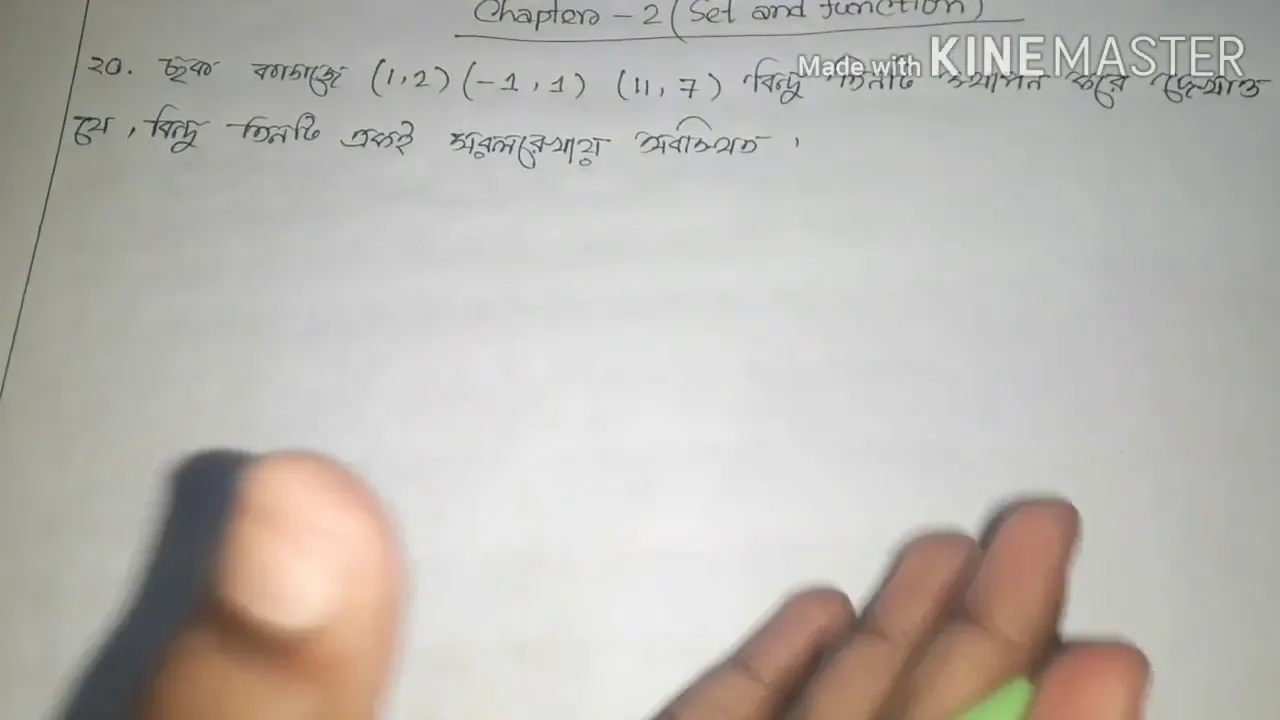 Chapter - 2 (Set and function)
Made with KINEMASTER
২০. ছক কাগজে (1,2) (-1,1) (11,7) বিন্দু তিনটি স্থাপন করে দেখাও
যে, বিন্দু তিনটি একই সরলরেখায় অবস্থিত ।